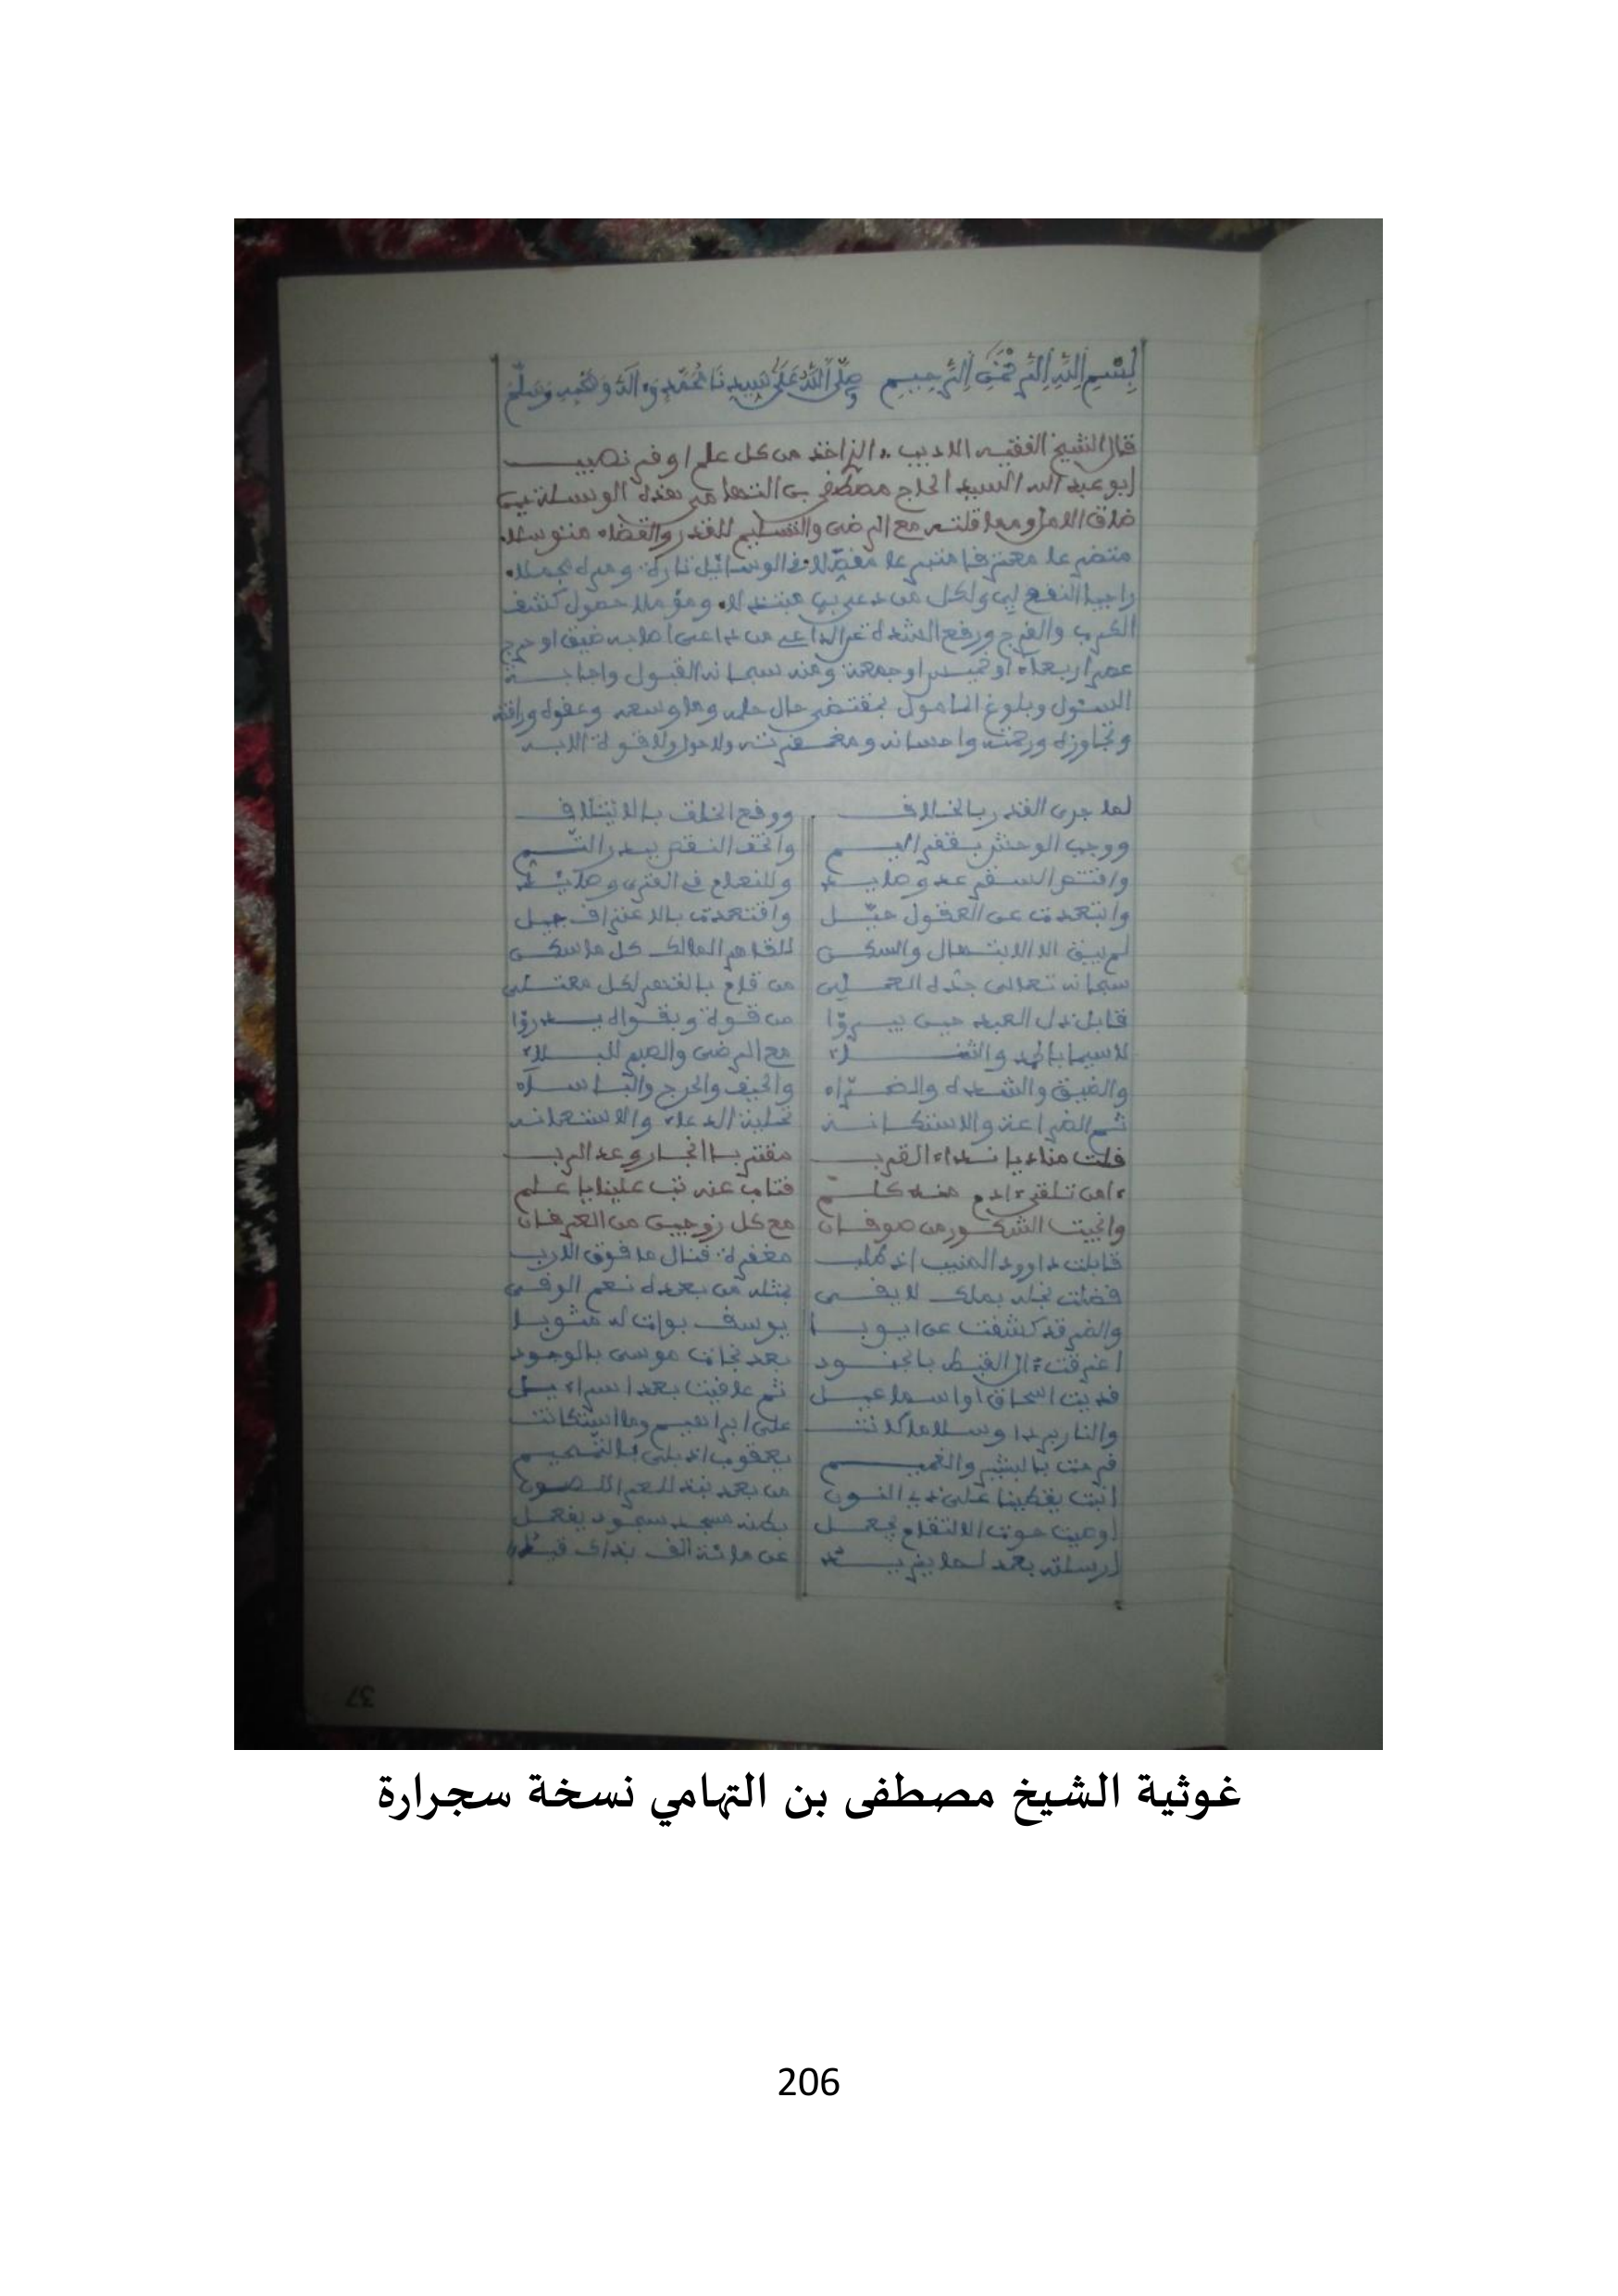 بسم الله الرحمن الرحيم وصلى الله على سيدنا محمد وءاله وصحبه وسلم
قال الشيخ الفقيه الاديب الاخذ من كل علم اوفر نصيب
ابو عبد الله السيد الحاج مصطفى بن التهامي هذه الوسيلة حين
ضاق الامر ومما قلته مع الرضى والتسليم للقدر والقضاء متوسلا
متضرعا معترفا متبرعا مفصلا في الوسائل تارة ومرة مجملا
راجيا النفع لي ولكل من دعى بها مبتهلا ومؤملا حصول كشف
الكرب والفرج ورفع الشدة عن الداعي من داعى اصابه ضيق او حرج
عصر اربعاء او خميس او جمعة ومنه سبحانه القبول واجابة
السئول وبلوغ المامول بمقتضى حال حلمه وما وسعه وعفوه ورافته
وتجاوزه ورحمته واحسانه ومغفرته ولا حول ولا قوة الا به
لما جرى القدر بالخلاف ووقع الخلق بالائتلاف
ووجب الوحش بقفر اليم والخف النقص ببدر التم
وابتعدت عن العقول حيل واقتعدت بالاعتراف جيل
لم يبق الا الابتهال والسكن للقاهر المالك كل ما سكن
سبحانه تعالى جده العلي من قام بالقهر لكل معتلي
قابل ذل العبد حين يبروا من قوة وبقواه يدروا
لاسيما بالحمد والثناء مع الرضى والصبر للبلاء
والضيق والشدة والضراء والحيف والحرج والباساء
ثم الضراعة والاستكانه تحلية الدعاء والاستعانه
قلت مناديا نداء القرب مقتربا انجاز وعد الرب
ءامن تلقى ءادم منه كلم فتاب عنه تب علينا يا علم
وانجيت الشكور من طوفان مع كل زوجين من العرفان
قابلت داوود المنيب اذ طلب مغفرة فنال ما فوق الارب
فضلت نجله بملك لا يفي بمثله من بعده نعم الوفي
والضر قد كشفت عن ايوبا يوسف بوات له مثوبا
اغرقت ءال القبط بالجنود بعد نجات موسى بالوجود
فديت اسحاق او اسماعيل ثم عافيت بعد اسراءيل
والنار بردا وسلاما كانت على ابراهيم وما استكانت
فرحت بالبشير والقميص يعقوب اذ بلي
انبت يقطينا على ذي النون من بعد نبذ للعرا
اوحيت حوت الالتقام يجعل بطنه مسجد سجود يفعل
ارسلته بعد لما يزيد عن مائة الف
37
غوثية الشيخ مصطفى بن التهامي نسخة سجرارة
206